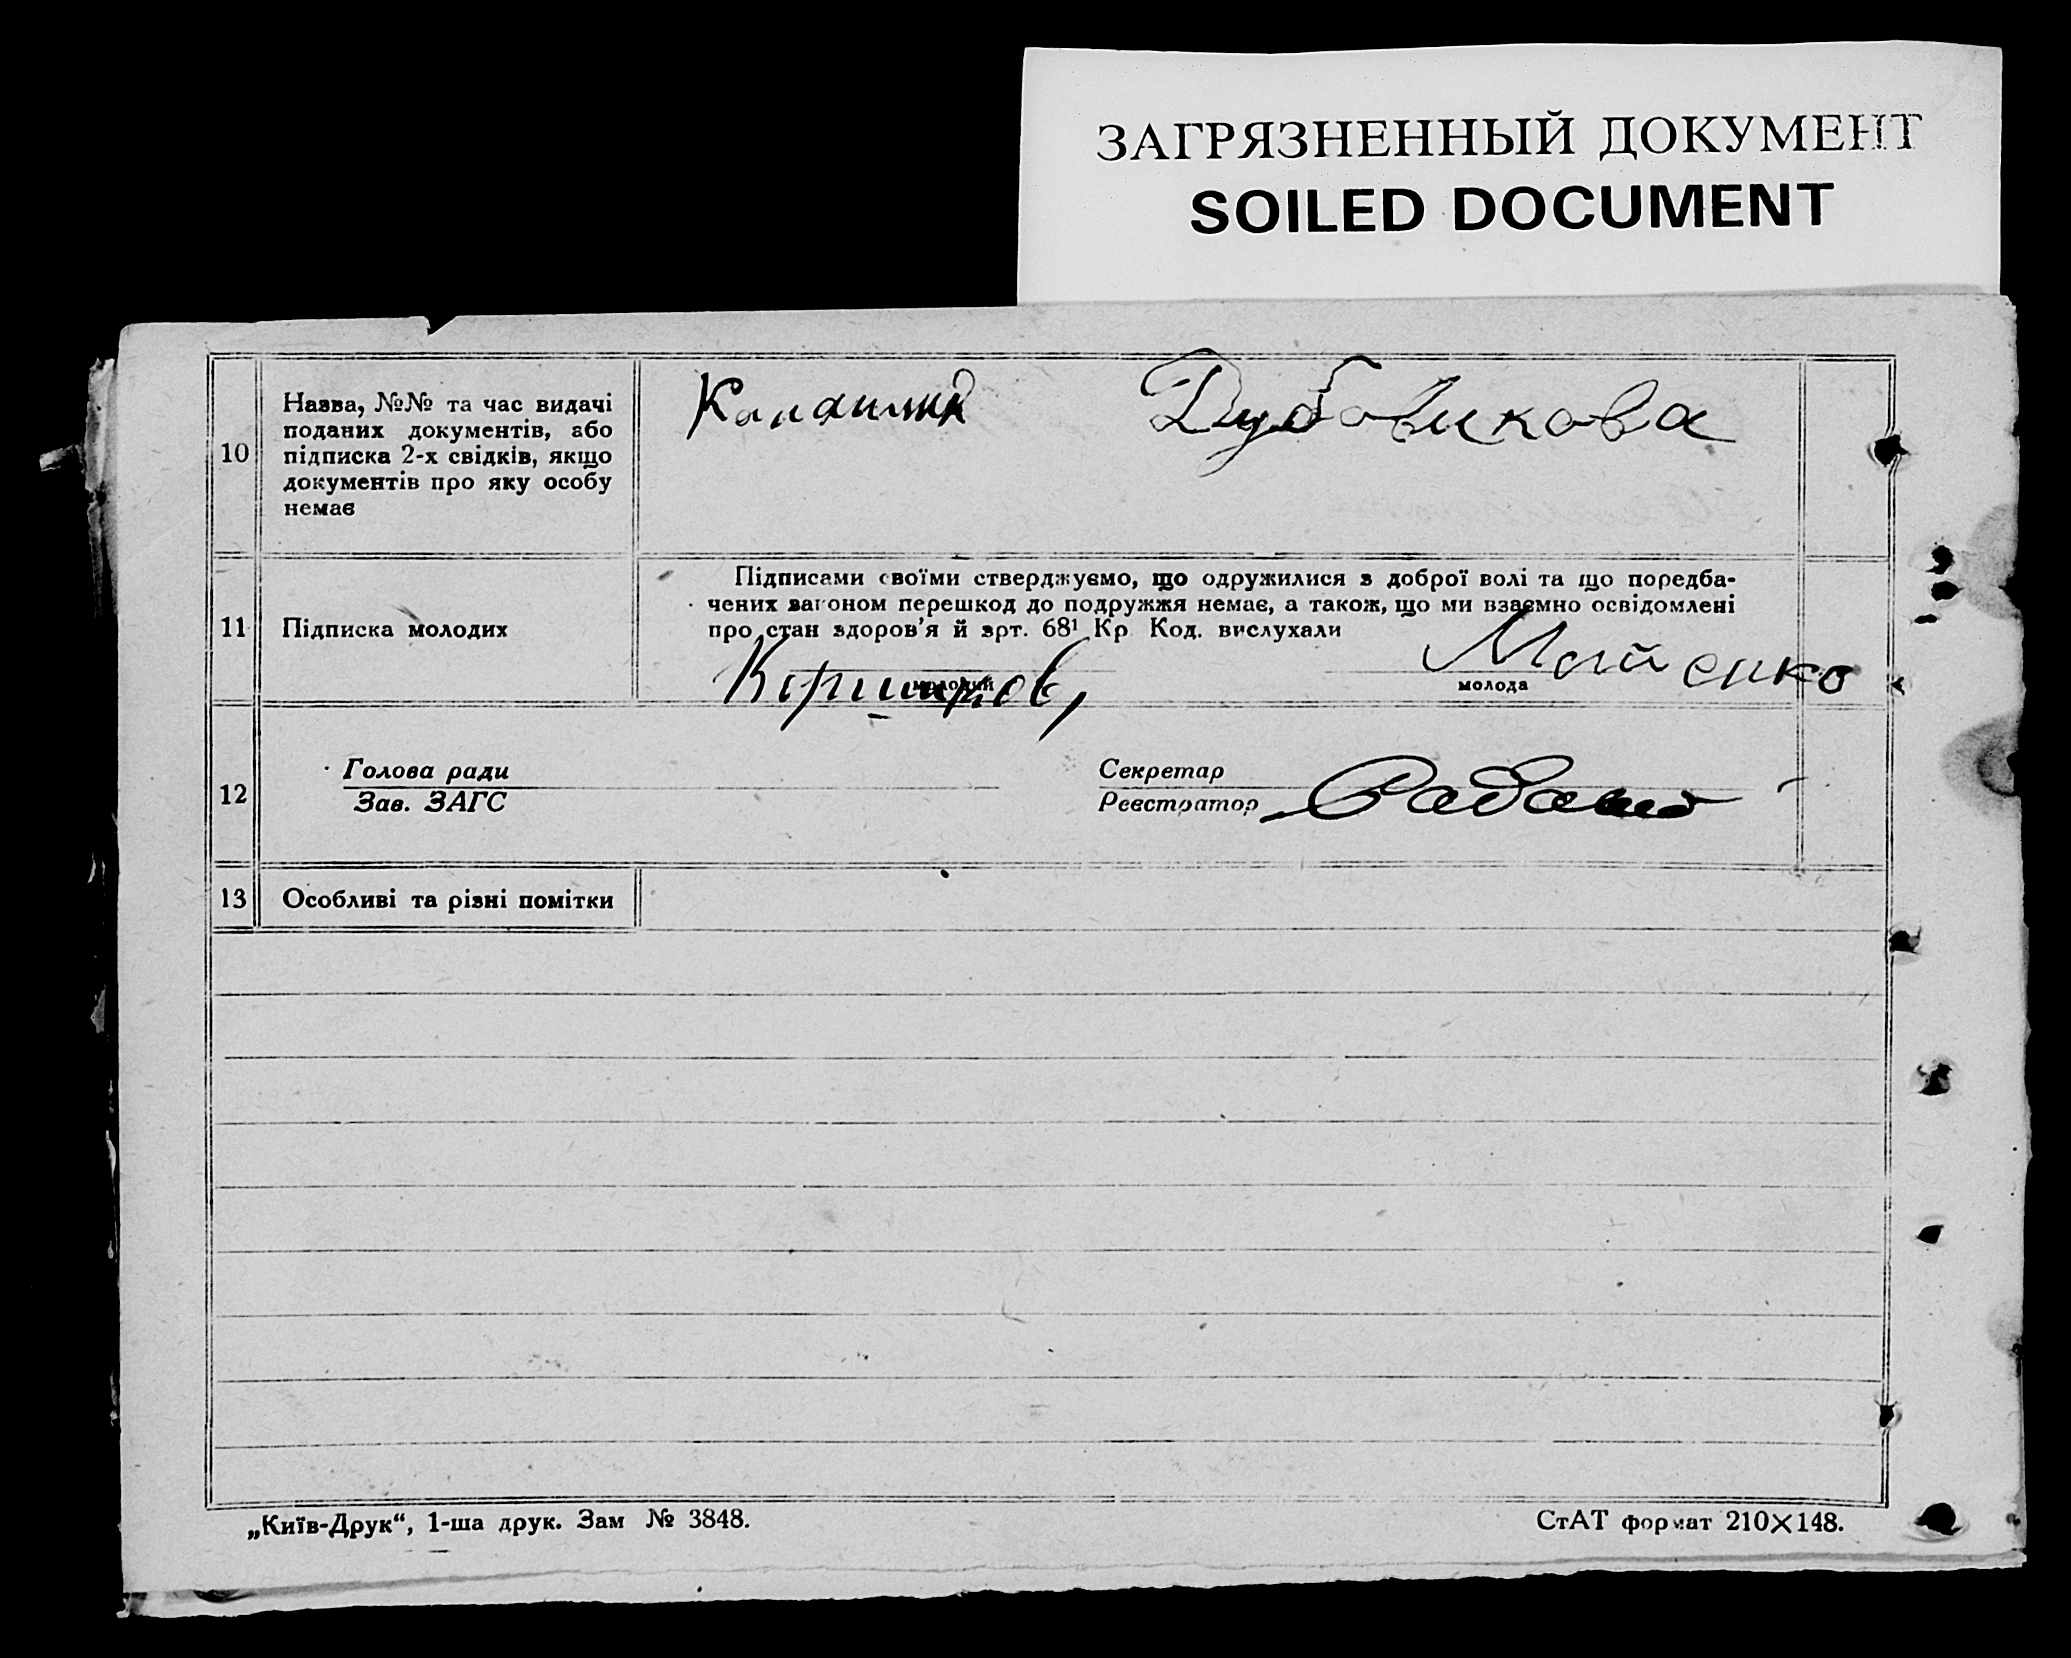 ЗАГРЯЗНЕННЫЙ ДОКУМЕНТ
SOILED DOCUMENT
10
Назва, №№ та час видачі
поданих документів, або
підписка 2-х свідків, якщо
документів про яку особу
немає
Дубовикова
11
Підписка молодих
Підписами своїми стверджуємо, що одружилися з доброї волі та що поредба-
чених законом перешкод до подружжя немає, а також, що ми взаємно освідомлені
про стан здоров'я й арт. 68¹ Кр. Код. вислухали
молодий
молода
Мойсенко
12
Голова ради
Зав. ЗАГС
Секретар
Реєстратор
13
Особливі та різні помітки
„Київ-Друк“, 1-ша друк. Зам № 3848.
СтАТ формат 210×148.